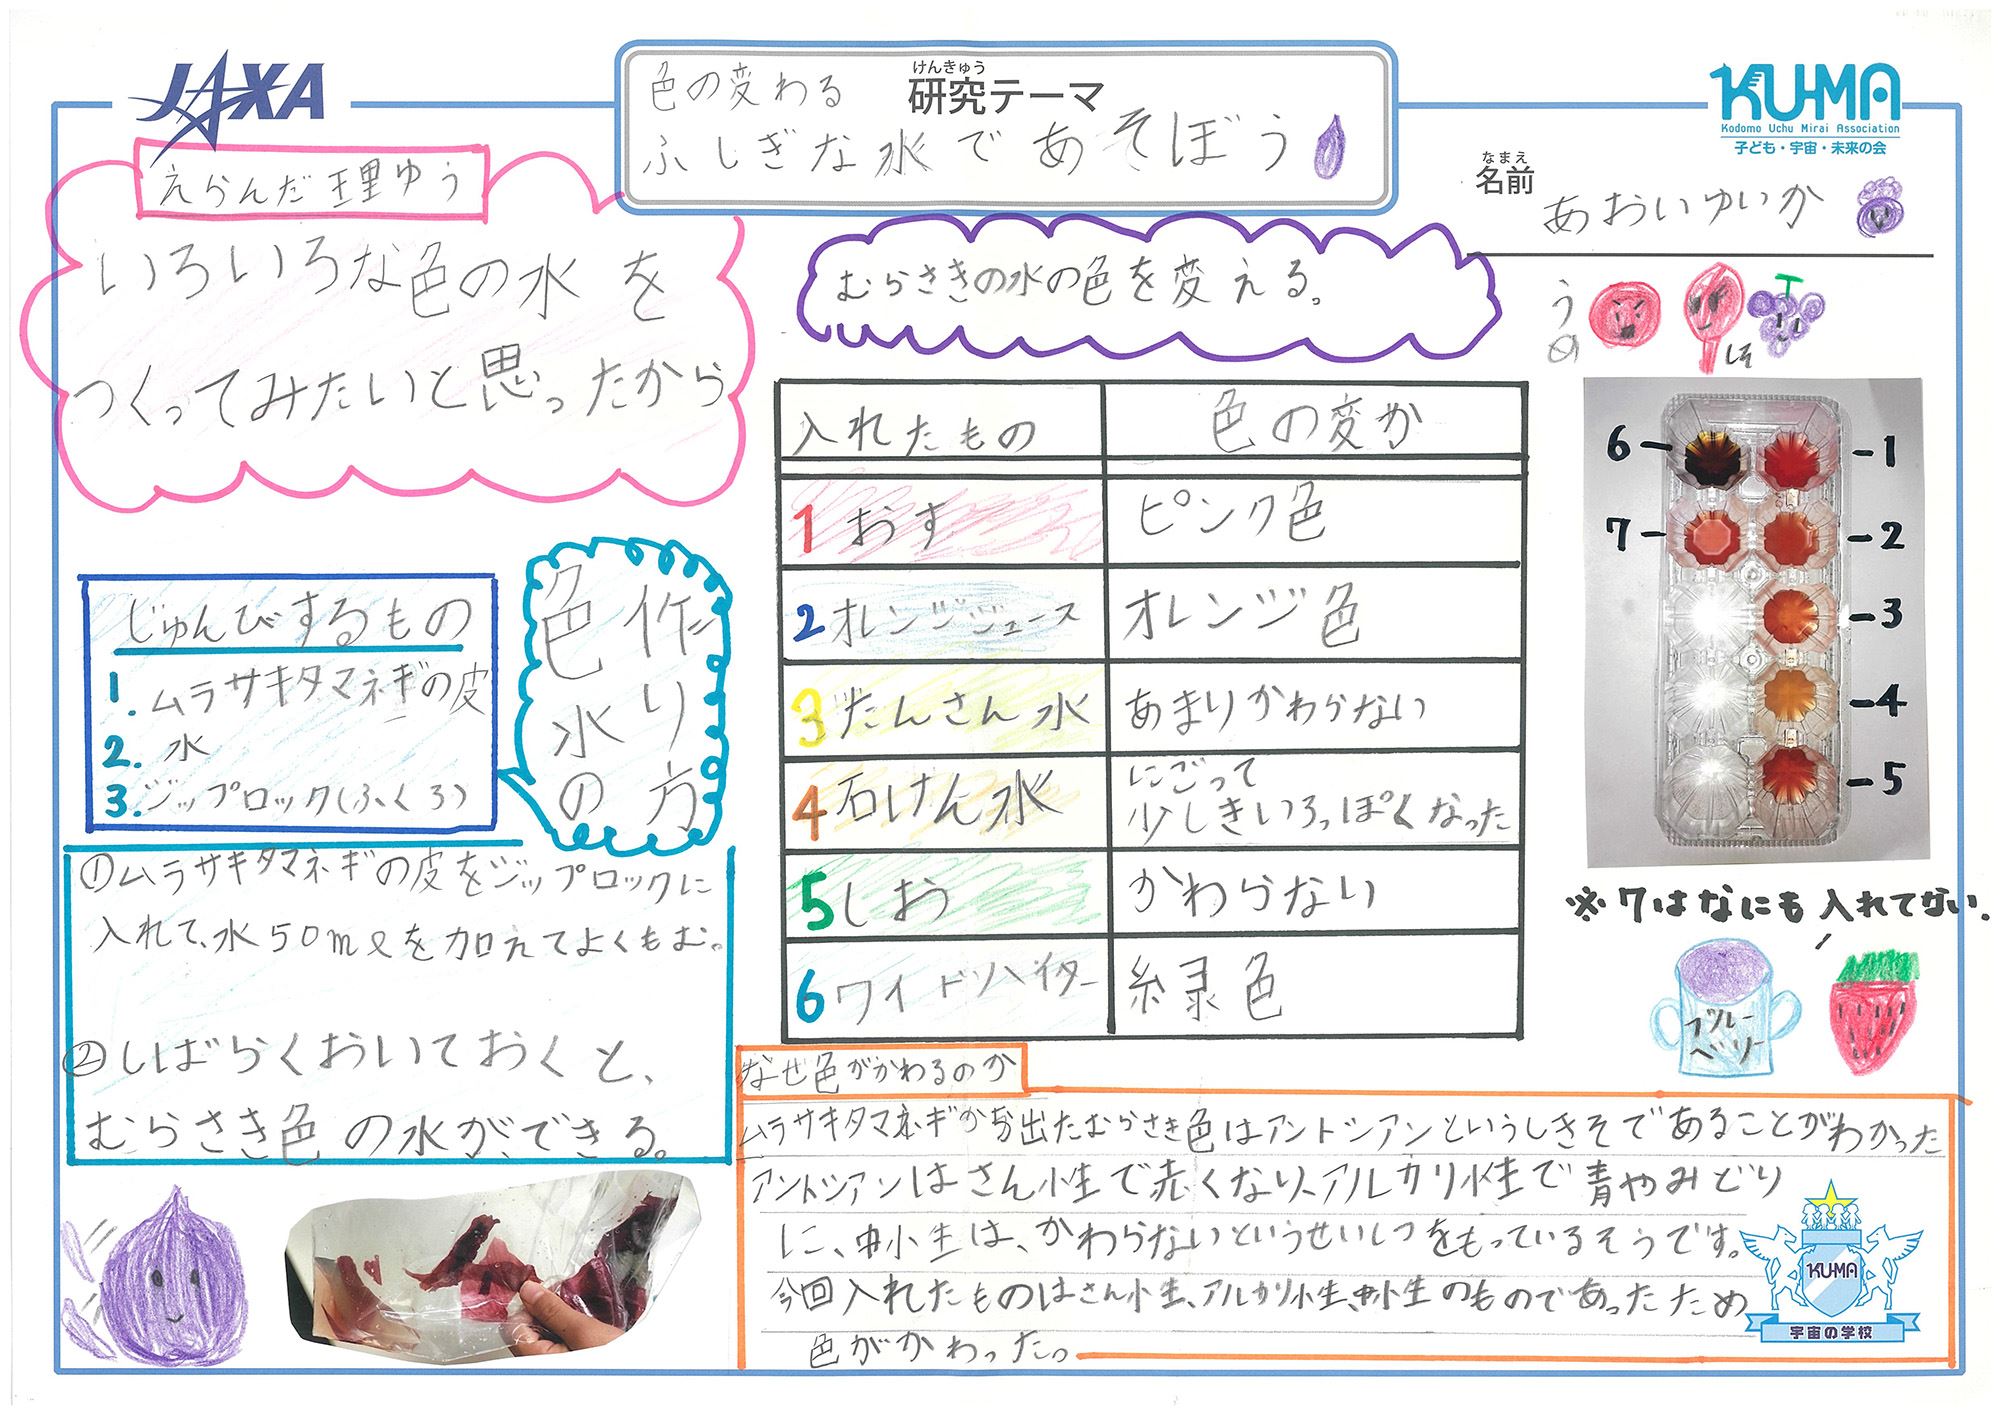 JAXA
けんきゅう
研究テーマ
色の変わる
ふしぎな水であそぼう
KU-MA
Kodomo Uchu Mirai Association
子ども・宇宙・未来の会
なまえ
名前
あおいゆいか
えらんだ理ゆう
いろいろな色の水を
つくってみたいと思ったから
じゅんびするもの
1. ムラサキタマネギの皮
2. 水
3. ジップロック(ふくろ)
色水の
作り方
①ムラサキタマネギの皮をジップロックに
入れて、水50mlを加えてよくもむ。
②しばらくおいておくと、
むらさき色の水ができる。
むらさきの水の色を変える。
入れたもの 色の変か
1 おす ピンク色
2 オレンジジュース オレンジ色
3 たんさん水 あまりかわらない
4 石けん水 にごって
少しきいろっぽくなった
5 しお かわらない
6 ワイドハイター 緑色
うめ
しそ
6 1
7 2
3
4
5
※7はなにも入れてない.
ブルー
ベリー
なぜ色がかわるのか
ムラサキタマネギから出たむらさき色はアントシアンというしきそであることがわかった
アントシアンはさん性で赤くなり、アルカリ性で青やみどり
に、中性は、かわらないというせいしつをもっているそうです。
今回入れたものはさん性、アルカリ性、中性のものであったため
色がかわった。
KU-MA
宇宙の学校